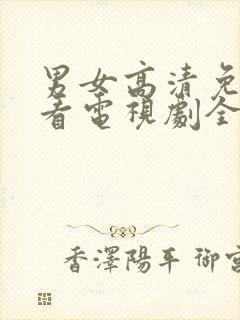 男女高清免
看電視劇全
香澤陽平 御宮